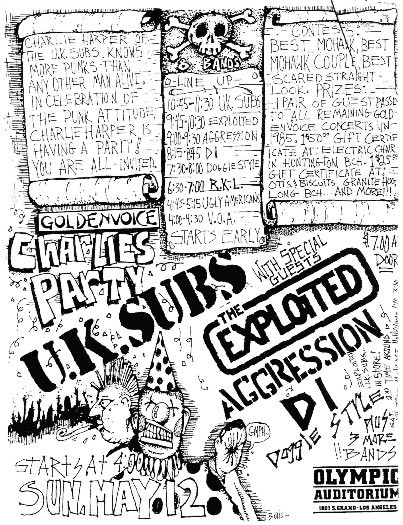 CHARLIE HARPER OF
THE U.K. SUBS KNOWS
MORE PUNKS THAN
ANY OTHER MAN ALIVE.
IN CELEBRATION OF
THE PUNK ATTITUDE
CHARLIE HARPER IS
HAVING A PARTY!
YOU ARE ALL INVITED.
8 BANDS
LINE UP
10:45-11:30 U.K. SUBS
9:45-10:30 EXPLOITED
9:00-9:30 AGGRESSION
8:15-8:45 DI
7:30-8:00 DOGGIE STYLE
6:30-7:00 R.K.L.
4:45-5:15 UGLY AMERICANS
4:00-4:30 V.O.A.
STARTS EARLY
CONTESTS:
BEST MOHAWK, BEST
MOHAWK COUPLE, BEST
SCARED STRAIGHT
LOOK. PRIZES:
1 PAIR OF GUEST PASS
TO ALL REMAINING GOLD-
ENVOICE CONCERTS IN
1985, 150.00 GIFT CERTIF
ICATE AT ELECTRIC CHAIR
IN HUNTINGTON BCH.
GIFT CERTIFICATE AT
LONG BCH. AND MORE!!
GOLDENVOICE
CHARLIES
PARTY
U.K. SUBS
WITH SPECIAL
GUESTS
$7.00 A
DOOR
THE
EXPLOITED
AGGRESSION
DI
DOGGIE STYLE
PLUS
3 MORE
BANDS
STARTS AT 4:00
SUN. MAY. 12.
OLYMPIC
AUDITORIUM
1801 S. GRAND · LOS ANGELES